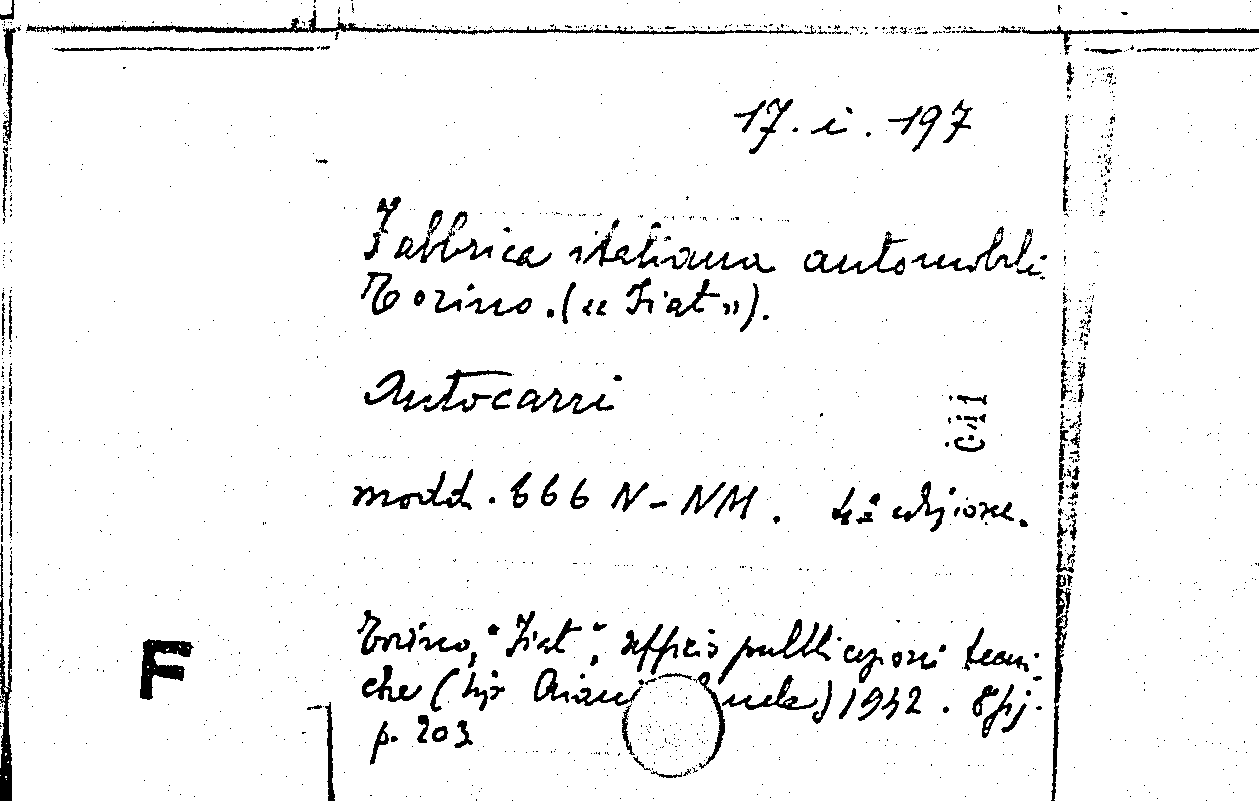 17. i. 197
Fabbrica italiana automobili
Torino. (« Fiat »).
Autocarri
cii
modd. 666 N - NM. 4ª edizione.
F
Torino, "Fiat", Ufficio pubblicazioni tecni-
che (tip. 1942. 8° fig.
p. 203